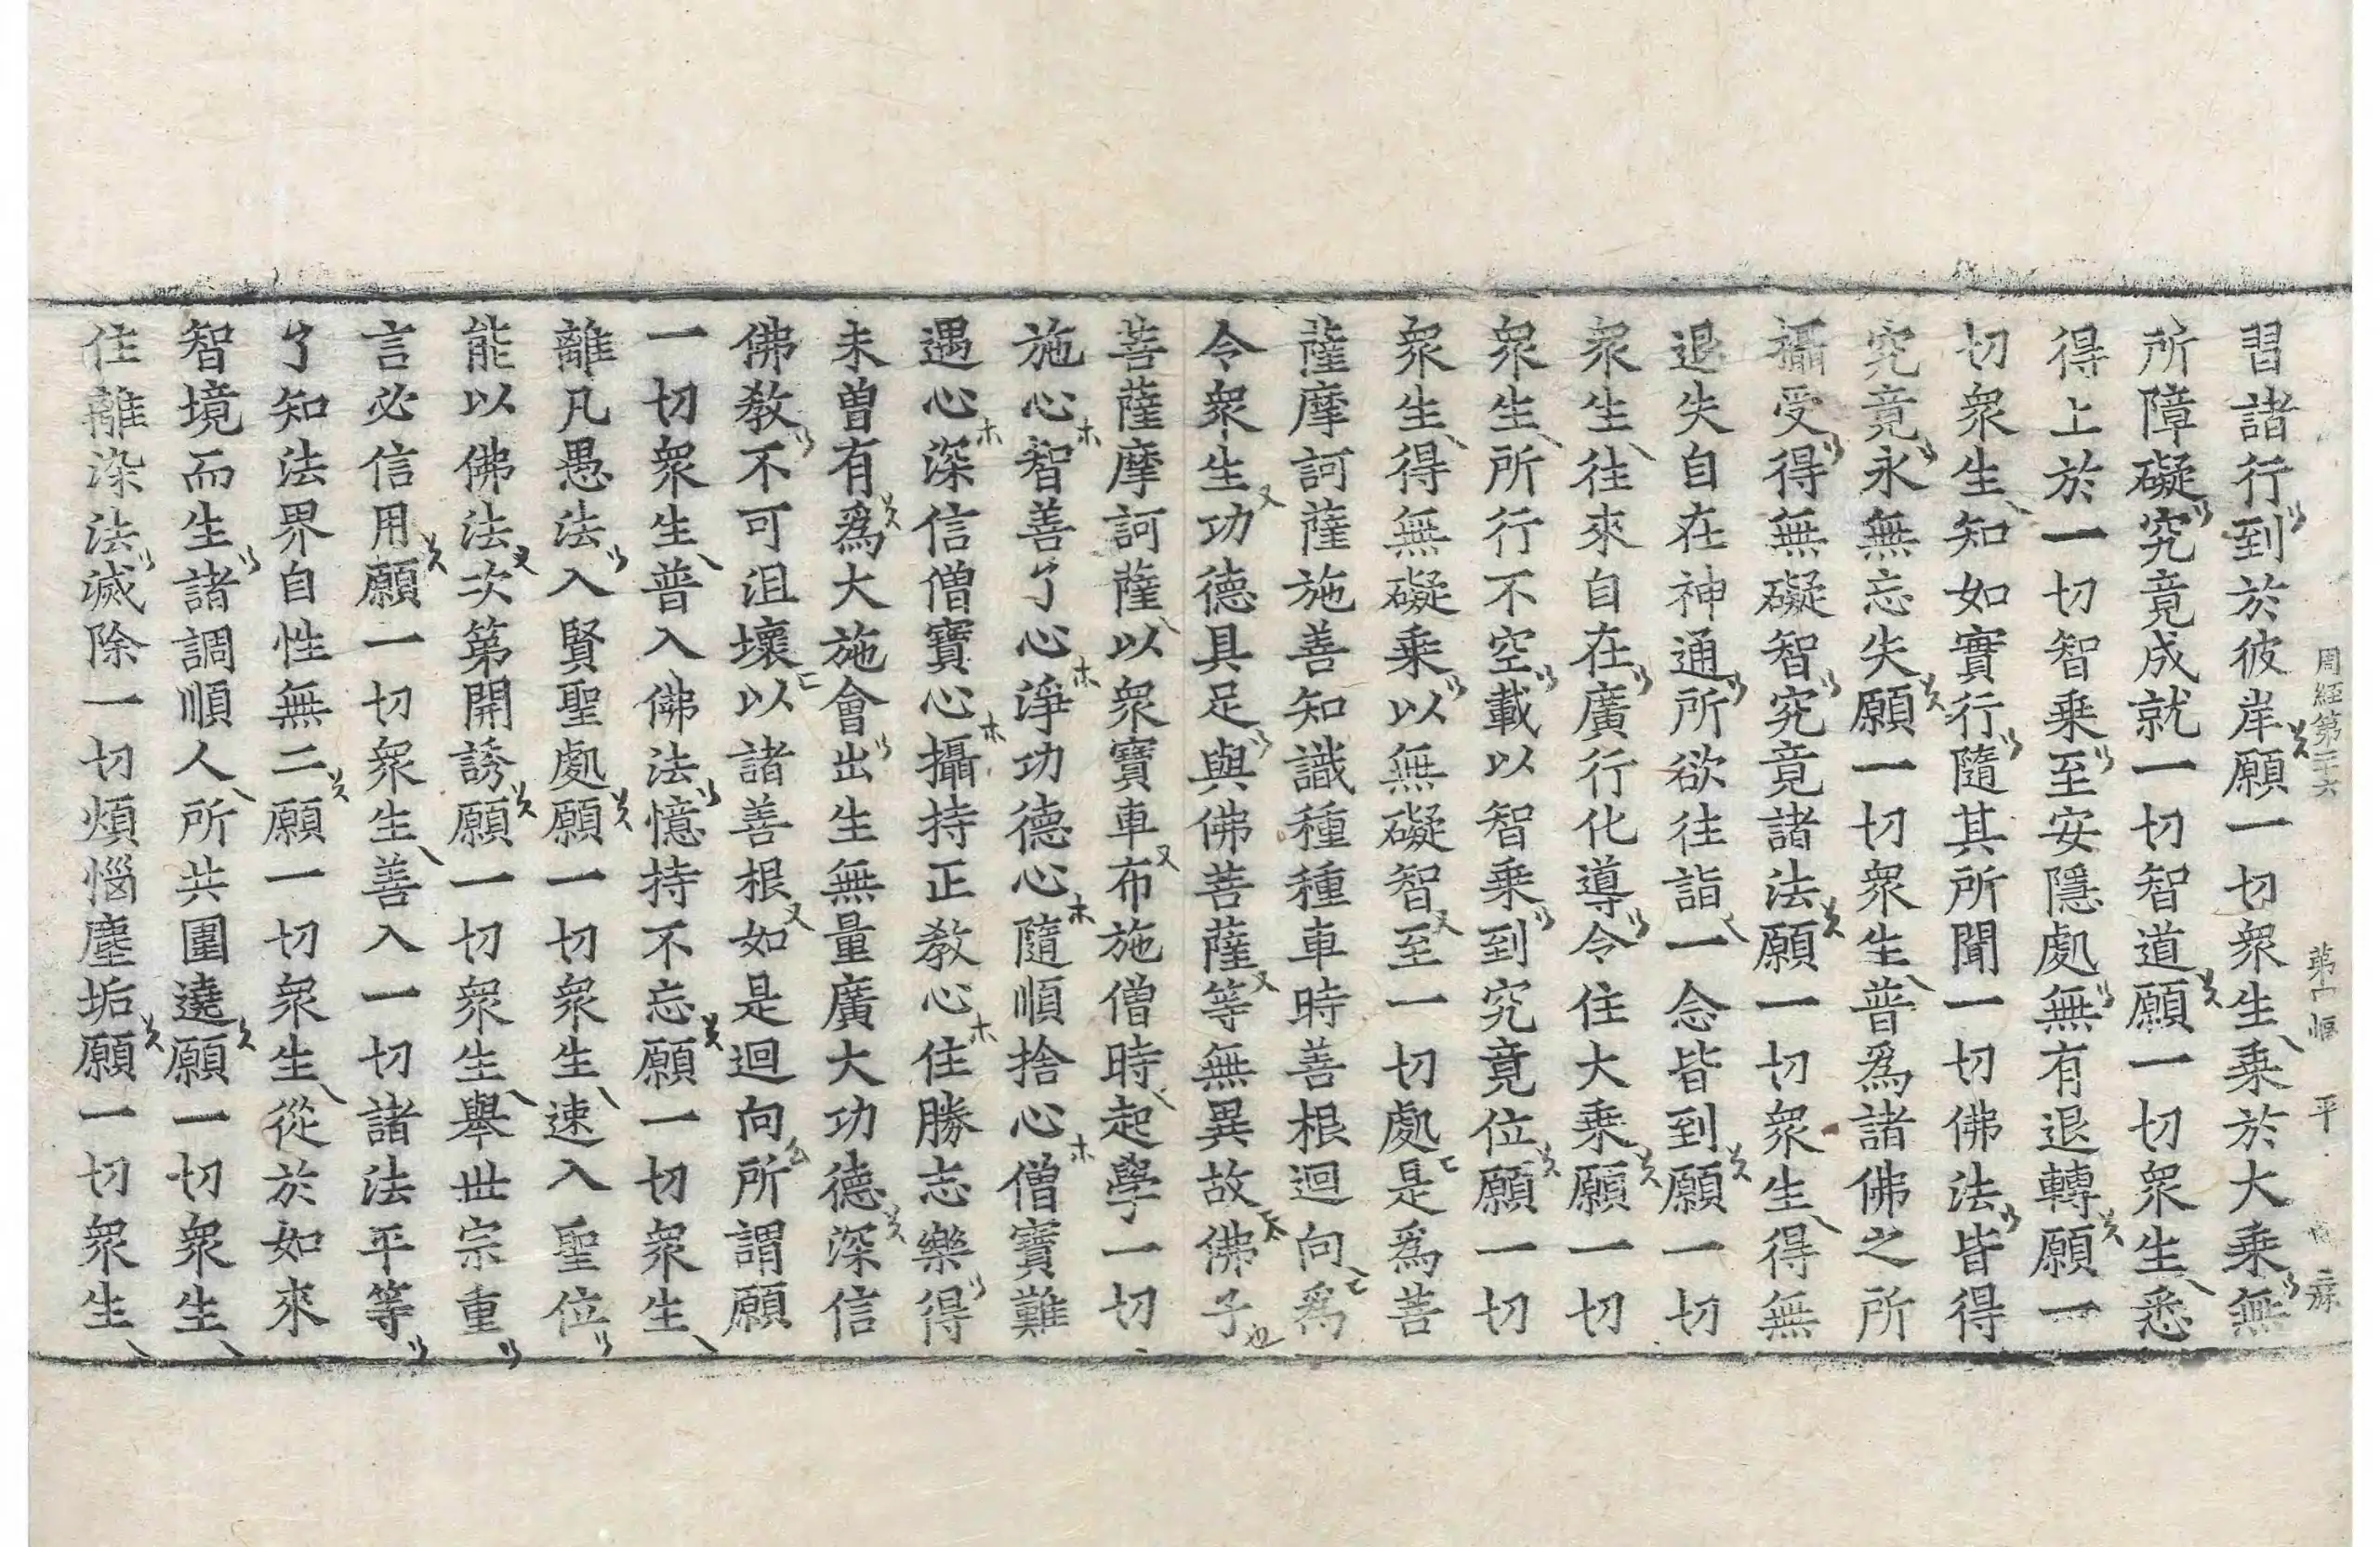 周經第二十六 第十幅 平
習諸行到於彼岸願一切衆生乗於大乗無
所障礙究竟成就一切智道願一切衆生悉
得上於一切智乗至安隱處無有退轉願一
切衆生知如實行隨其所聞一切佛法皆得
究竟永無忘失願一切衆生普爲諸佛之所
攝受得無礙智究竟諸法願一切衆生得無
退失自在神通所欲往詣一念皆到願一切
衆生往來自在廣行化導令住大乗願一切
衆生所行不空載以智乗到究竟位願一切
衆生得無礙乗以無礙智至一切處是爲菩
薩摩訶薩施善知識種種車時善根迴向爲
令衆生功德具足與佛菩薩等無異故佛子
菩薩摩訶薩以衆寶車布施僧時起學一切
施心智善了心淨功德心隨順捨心僧寶難
遇心深信僧寶心攝持正教心住勝志樂得
未曽有爲大施會出生無量廣大功德深信
佛教不可沮壞以諸善根如是迴向所謂願
一切衆生普入佛法憶持不忘願一切衆生
離凡愚法入賢聖處願一切衆生速入聖位
能以佛法次第開誘願一切衆生舉世宗重
言必信用願一切衆生善入一切諸法平等
了知法界自性無二願一切衆生從於如來
智境而生諸調順人所共圍遶願一切衆生
住離染法滅除一切煩惱塵垢願一切衆生